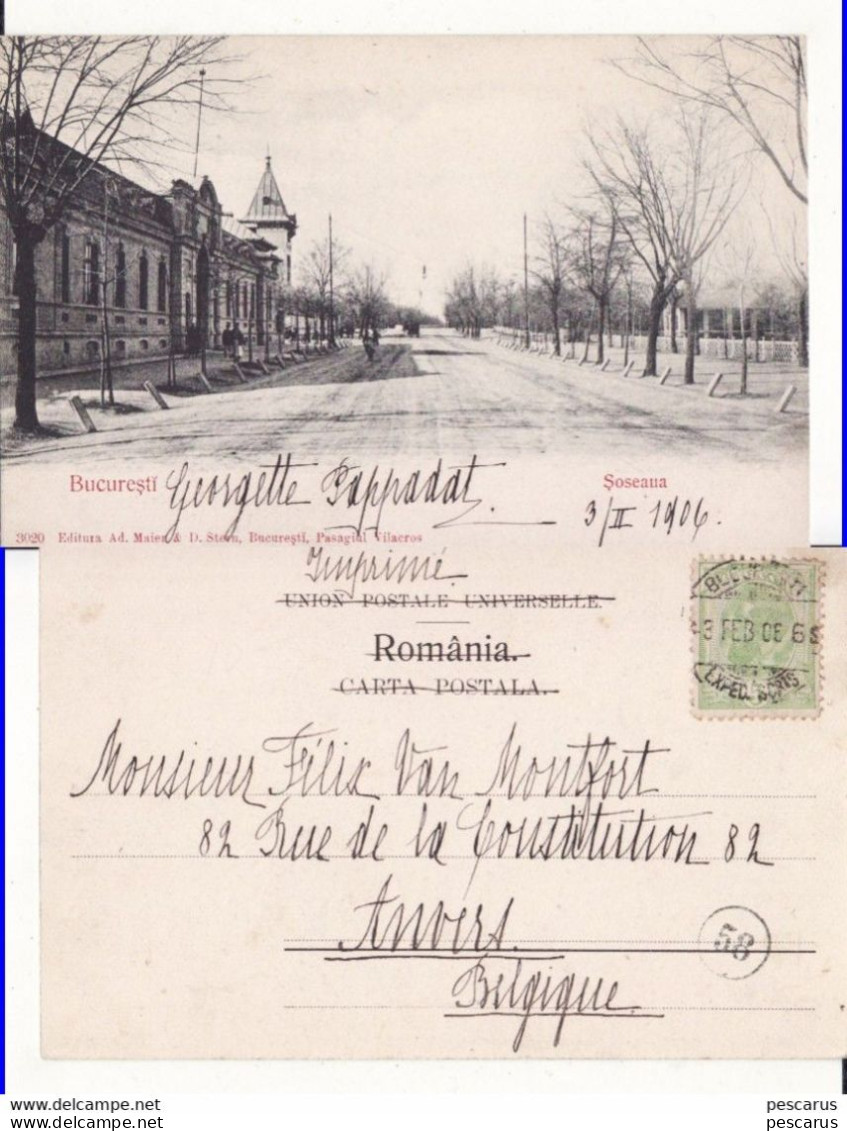 Bucureștĭ Georgette Pappadat. Șoseaua
3/II 1906.
3020 Editura Ad. Maier & D. Stern, Bucureștĭ, Pasagiul Vilacros
Imprimé
UNION POSTALE UNIVERSELLE.
România.
CARTA POSTALA.
BUCURESTI
3 FEB 06 6S
EXPED.
Monsieur Félix Van Montfort
82 Rue de la Constitution 82
Anvers.
58
Belgique.
delcampe.net pescarus
delcampe.net pescarus